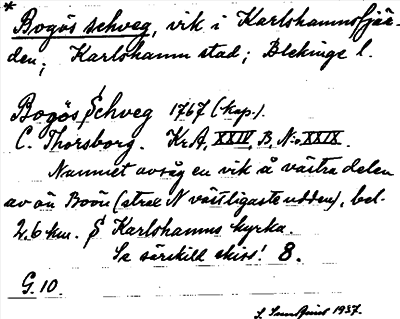 * Bogös schveg, vik i Karlshamnsfjär-
den; Karlshamn stad; Blekinge l.
Bogös Schveg 1767 (kop.).
C. Thorsborg. Kr.A, XXIV, B, N:o XXIX.
Namnet avsåg en vik å västra delen
av ön Boön (strax N västligaste udden), bel.
2,6 km. S Karlshamns kyrka.
Se särskild skiss! 8.
G. 10.
1937.